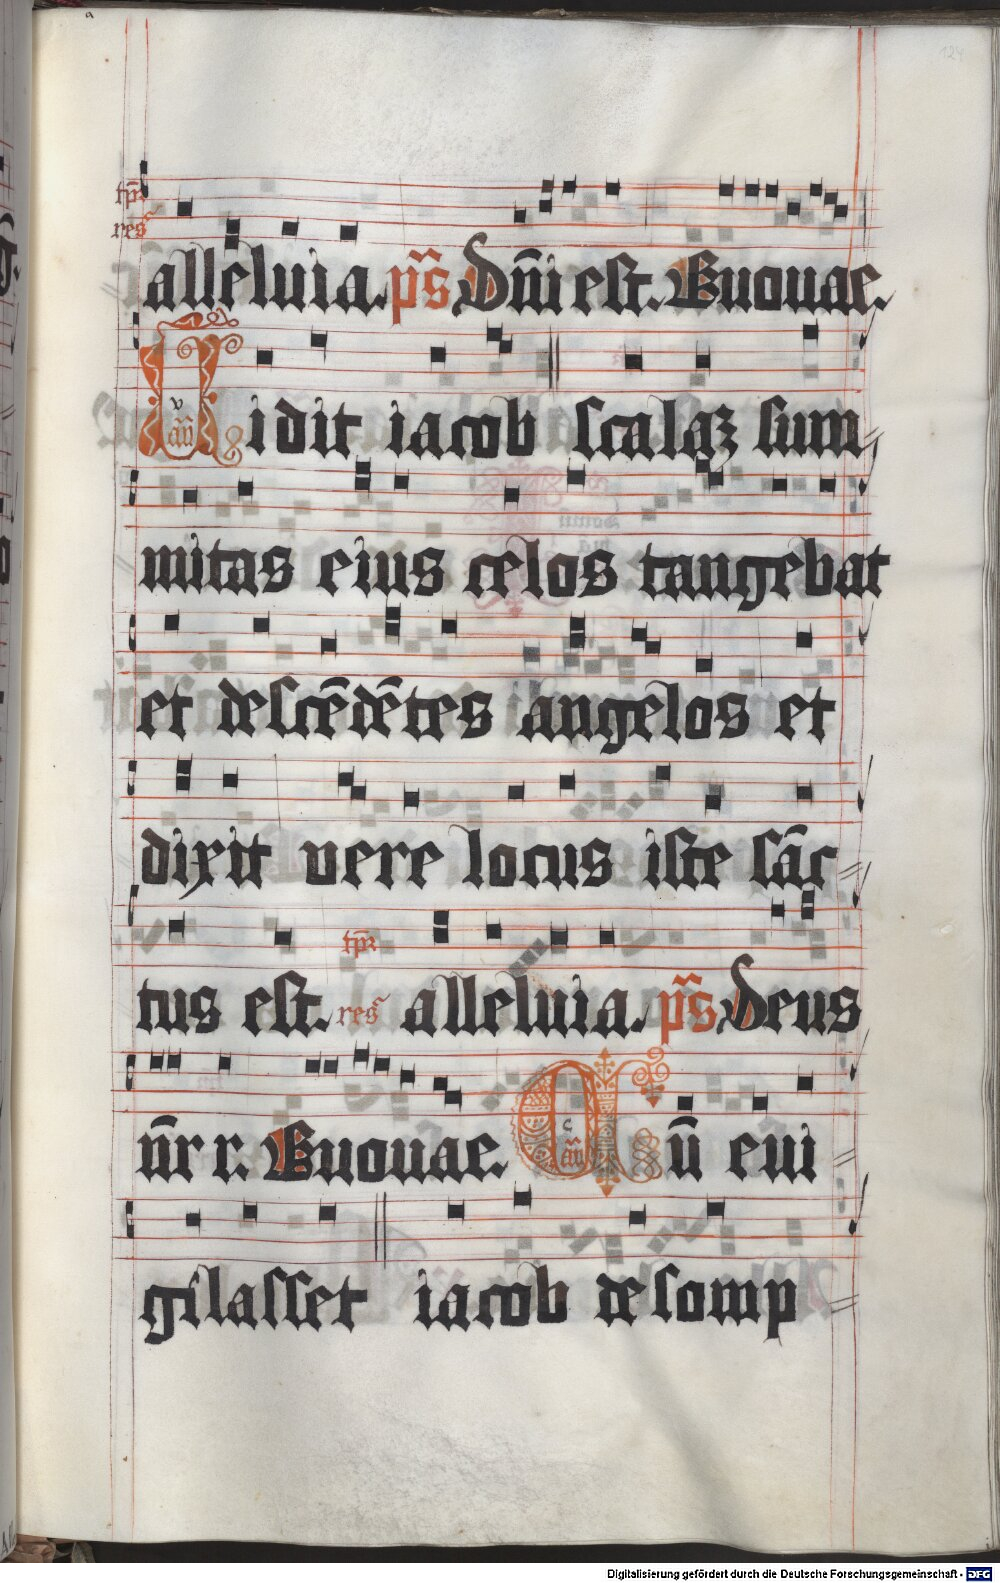 124
tp̄r
res
alleluia. p̄s Dn̄i est. Euouae.
v
an̄
Vidit iacob scalaꝫ sum
mitas eius celos tangebat
et descēdētes angelos et
dixit vere locus iste sāc
tus est. tp̄r res alleluia. p̄s Deus
n̄r r. Euouae. Cū evi
c
an̄
gilasset iacob de somp
Digitalisierung gefördert durch die Deutsche Forschungsgemeinschaft - DFG